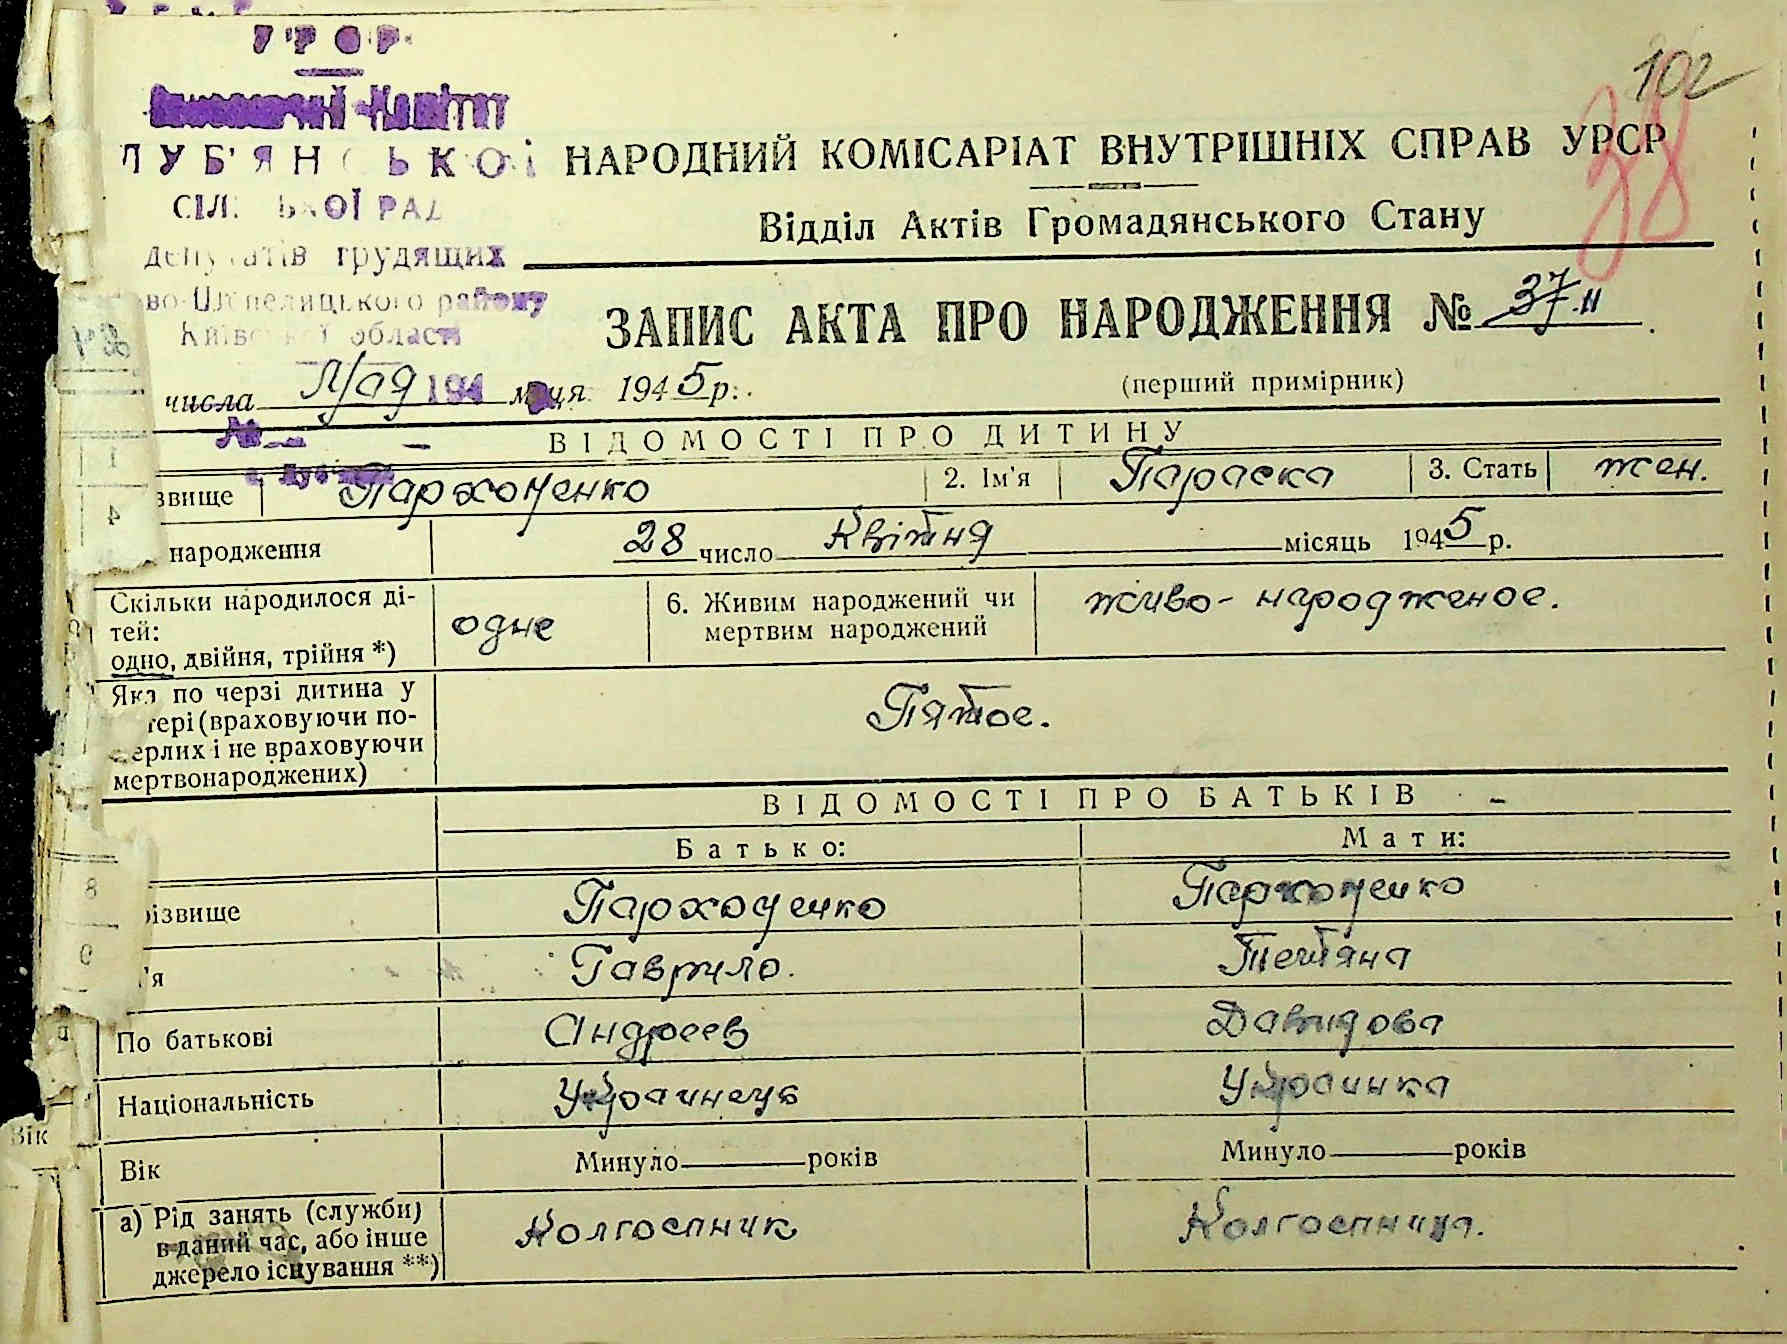 УРСР
Виконавчий Комітет
ЛУБ'ЯНСЬКОЇ
СІЛЬСЬКОЇ РАД
депутатів трудящих
во-Шепелицького району
Київської області
102
38
НАРОДНИЙ КОМІСАРІАТ ВНУТРІШНІХ СПРАВ УРСР
Відділ Актів Громадянського Стану
ЗАПИС АКТА ПРО НАРОДЖЕННЯ № 37
числа Мая 194 м-ця 1945 р.
(перший примірник)
№
ВІДОМОСТІ ПРО ДИТИНУ
звище Пархоменко 2. Ім'я Параска 3. Стать жен.
народження 28 число Квітня місяць 1945 р.
Скільки народилося ді-
тей:
одно, двійня, трійня *)
одне
6. Живим народжений чи
мертвим народжений
живо-народженое.
Яка по черзі дитина у
тері (враховуючи по-
мерлих і не враховуючи
мертвонароджених)
Пятое.
ВІДОМОСТІ ПРО БАТЬКІВ
Батько: Мати:
різвище Пархоменко Пархоменко
'я Гаврило. Тетяна
По батькові Андреев Давидова
Національність Украинець Украинка
Вік Минуло років Минуло років
а) Рід занять (служби)
в даний час, або інше
джерело існування **)
Колгоспник Колгоспниця.
Вік